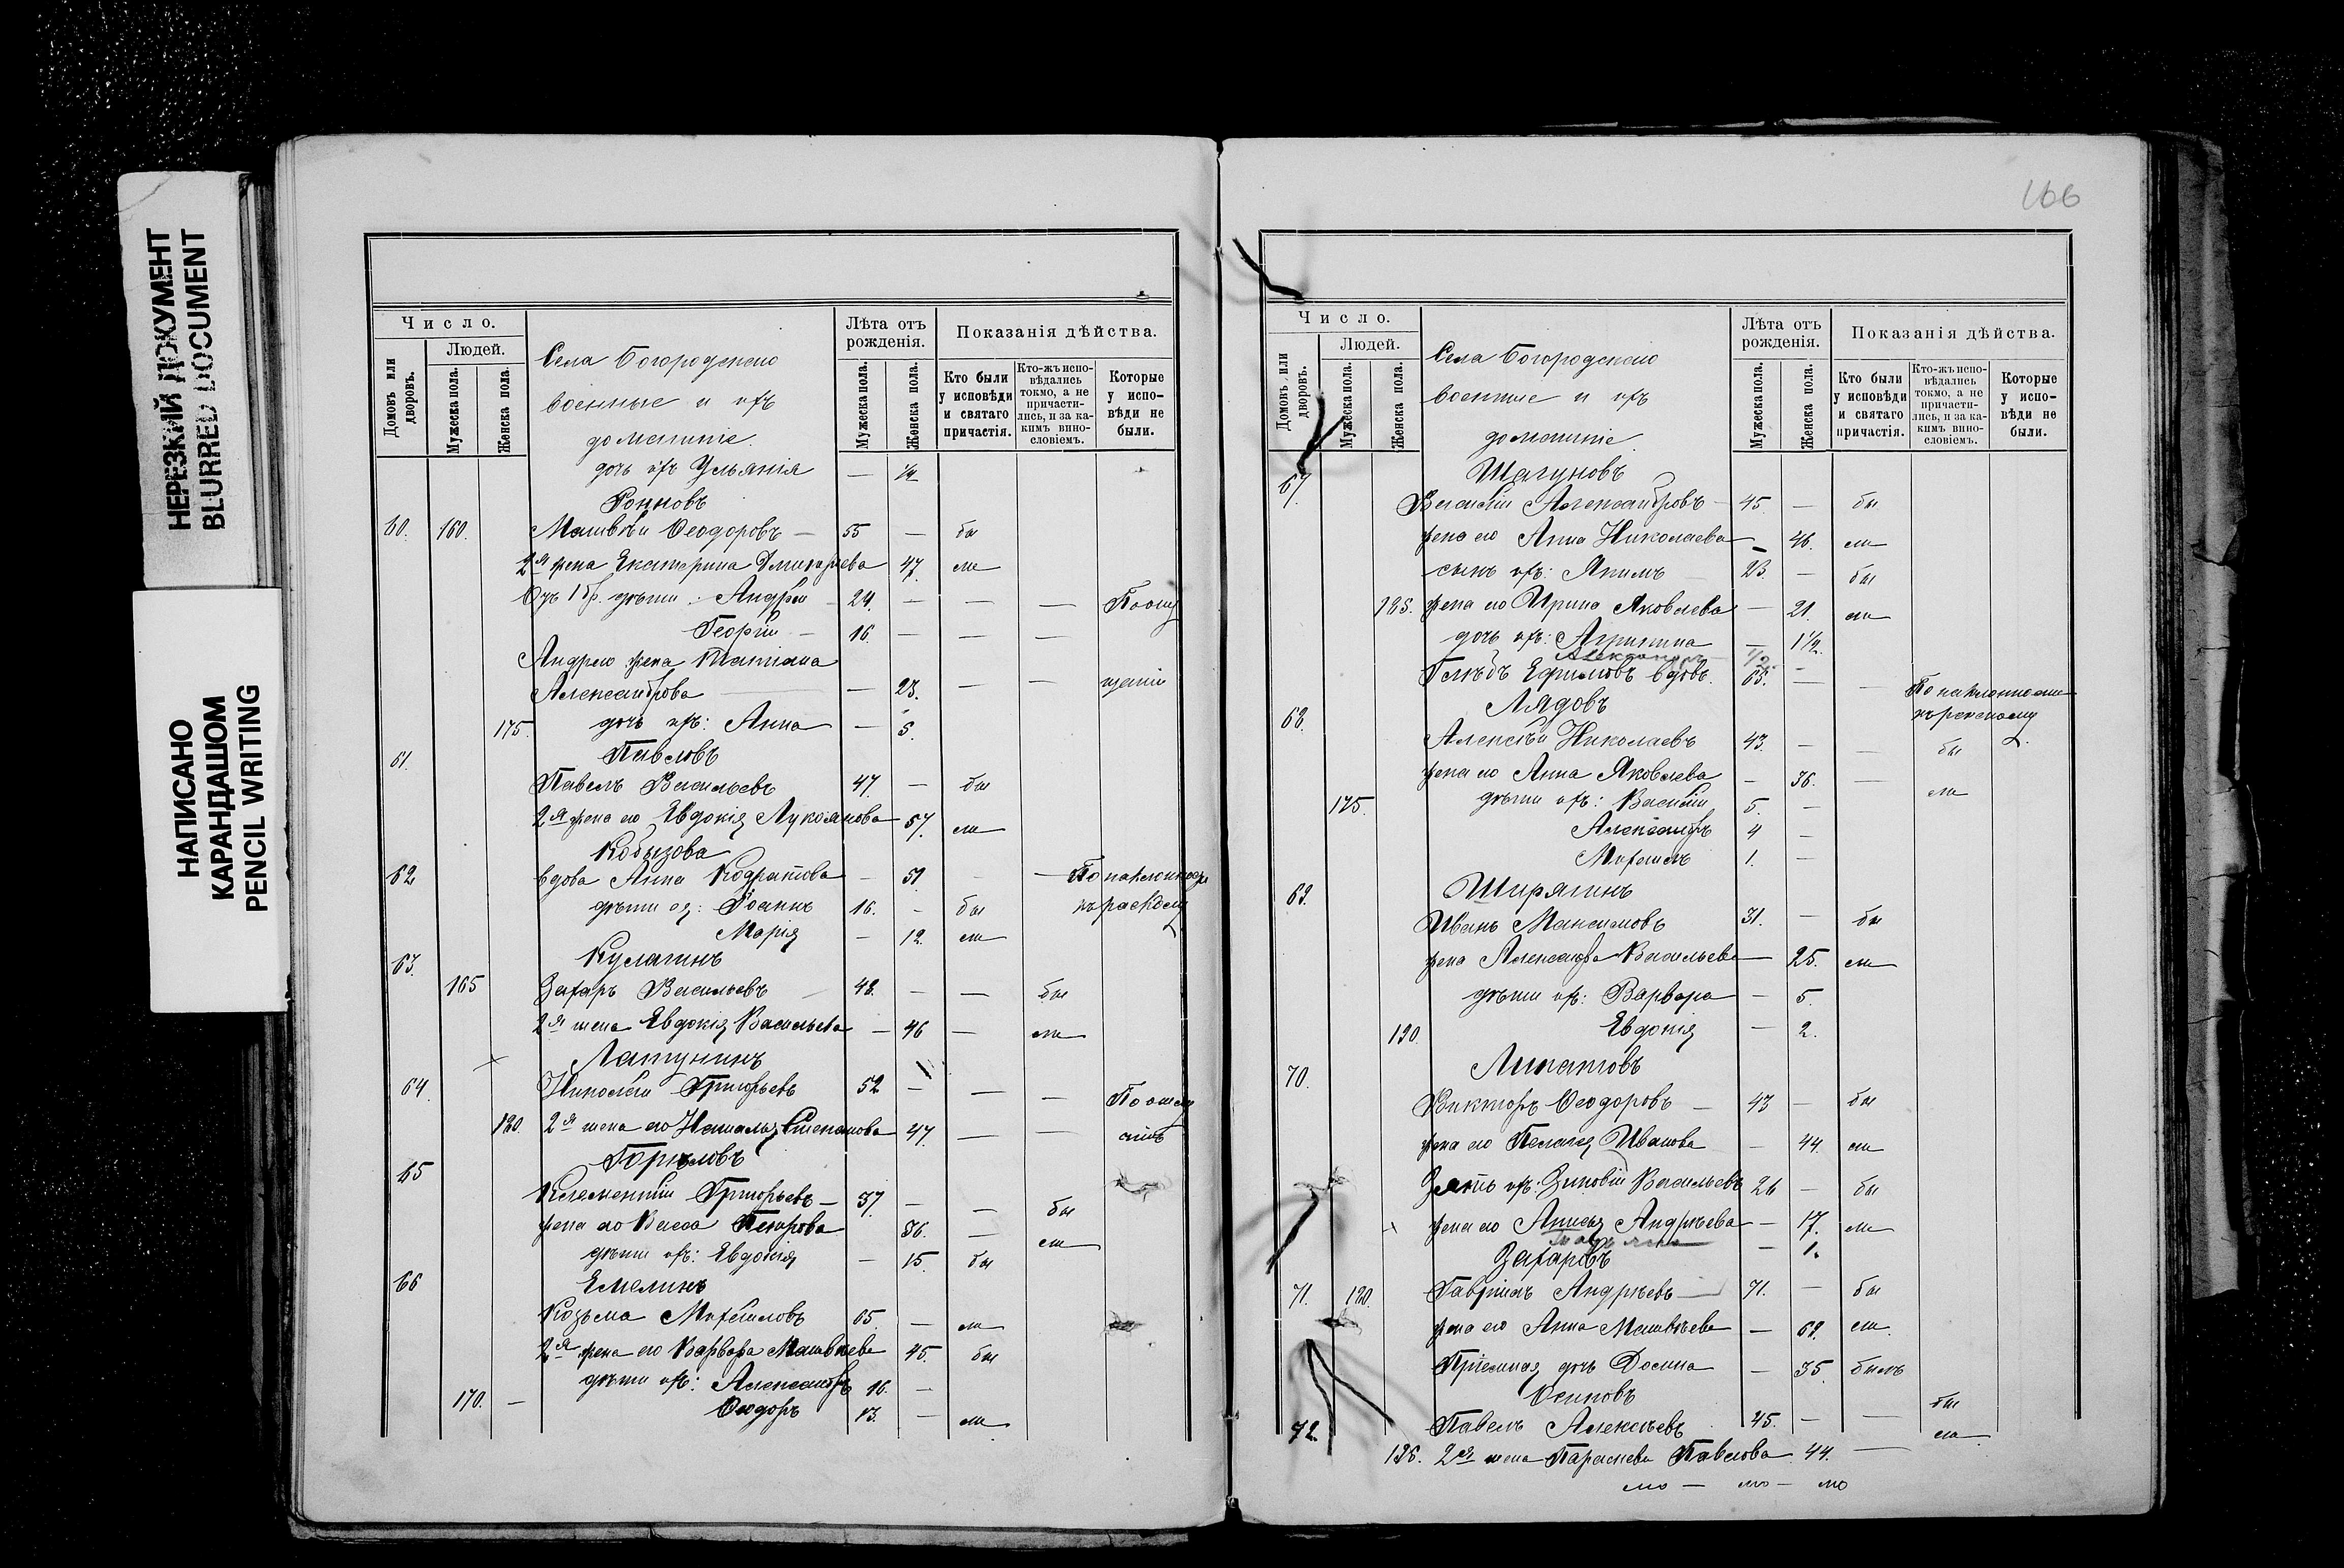 НЕРЕЗКИЙ ДОКУМЕНТ
BLURRED DOCUMENT
НАПИСАНО
КАРАНДАШОМ
PENCIL WRITING
Число.
Людей.
Домовъ или дворовъ.
Мужеска пола.
Женска пола.
Села Богородскаго
военные и ихъ
домашніе
Лѣта отъ рожденія.
Мужеска пола.
Женска пола.
Показанія дѣйства.
Кто были у исповѣди и святаго причастія.
Кто-жъ исповѣдались токмо, а не причастились, и за какимъ винословіемъ.
Которые у исповѣди не были.
дочь ихъ Ульянія —
60. 160. Матвѣй Ѳеодоровъ — 55 — бы
2я жена Екатерина Дмитріева 47. ла
дѣти: Андрей — 24. — — —
Георгій — 16. — — —
Андрея жена Татіана
Александрова — 23. — —
175. дочь ихъ: Анна — 5.
61. Павловъ
Павелъ Васильевъ 47. — бы
2я жена его Евдокія Лукоянова 57. ла
Кобызова
62 вдова Анна Кодратова — 51 — — По наклонности
дѣти ея: Іоаннъ 16. — бы къ расколу
Марія — 12. ла
63. Кулагинъ
165 Захаръ Васильевъ 48. — — бы
2я жена Евдокія Васильева — 46 — ла
Латунинъ
64. Николай Григорьевъ 52 — — —
180. 2я жена его Наталья Степанова 47. — —
65 Горѣловъ
Климентій Григорьевъ — 37. — — бы
жена его Васса Петрова 36. — ла
дѣти ихъ: Евдокія — 15. бы
66 Емелинъ
Козьма Михайловъ 65. — ла
2я жена его Варвара Матвѣева 45. бы
дѣти ихъ: Александръ 16. —
170. — Ѳеодоръ 13. — ла
166
Число.
Людей.
Домовъ или дворовъ.
Мужеска пола.
Женска пола.
Села Богородскаго
военные и ихъ
домашніе
Лѣта отъ рожденія.
Мужеска пола.
Женска пола.
Показанія дѣйства.
Кто были у исповѣди и святаго причастія.
Кто-жъ исповѣдались токмо, а не причастились, и за какимъ винословіемъ.
Которые у исповѣди не были.
67. Шагуновъ
Василій Александровъ — 45. — бы
жена его Анна Николаева — 46. ла
сынъ ихъ: Якимъ 23. — бы
185. жена его Ирина Яковлева — 21. ла
дочь ихъ: Агрипина — 1½.
Александръ ½.
Глѣбъ Ефимовъ вдовъ. 65. — — По наклонности
68. Лядовъ къ расколу
Алексѣй Николаевъ 43. — — бы
жена его Анна Яковлева — 36. — ла
175. дѣти ихъ: Василій 5. —
Александръ 4 —
Михаилъ 1. —
69. Ширягинъ
Иванъ Максимовъ 31. — бы
жена Александра Васильева — 25. ла
дѣти ихъ: Варвара — 5.
190. Евдокія — 2.
70. Липатовъ
Викторъ Ѳеодоровъ — 43 — бы
жена его Пелагея Иванова — 44. ла
Зять ихъ: Зиновій Васильевъ 26 — бы
жена его Анисья Андрѣева — 17. ла
— 1.
Захаровъ
71. 180. Гавріилъ Андрѣевъ — 71. — бы
жена его Анна Матвѣева — 69. ла.
Пріемная дочь Домна — 35. былъ
Осиповъ
72. Павелъ Алексѣевъ 45. — — бы
196. 2я жена Параскева Павлова 44. — ла